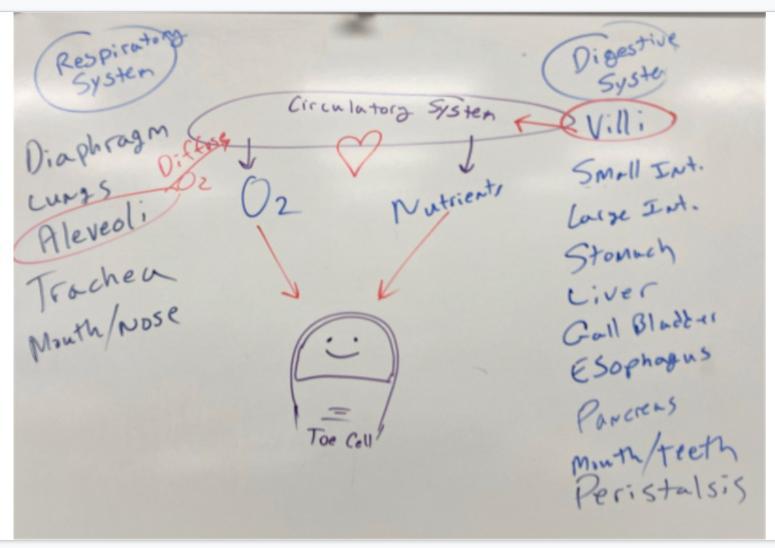 Respiratory
System
Diaphragm
Lungs
Aleveoli
Trachea
Mouth/Nose
Diffuse
O2
Circulatory System
O2
Nutrients
Toe Cell
Digestive
System
Villi
Small Int.
Large Int.
Stomach
Liver
Gall Bladder
Esophagus
Pancreas
Mouth/teeth
Peristalsis